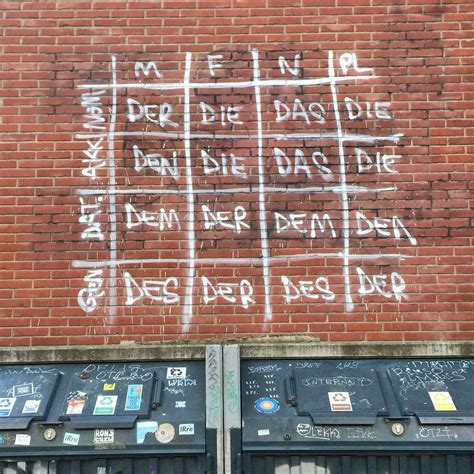 M F N PL
NOM DER DIE DAS DIE
AKK DEN DIE DAS DIE
DAT. DEM DER DEM DEN
GEN DES DER DES DER
INTERNET
iRie
iRie